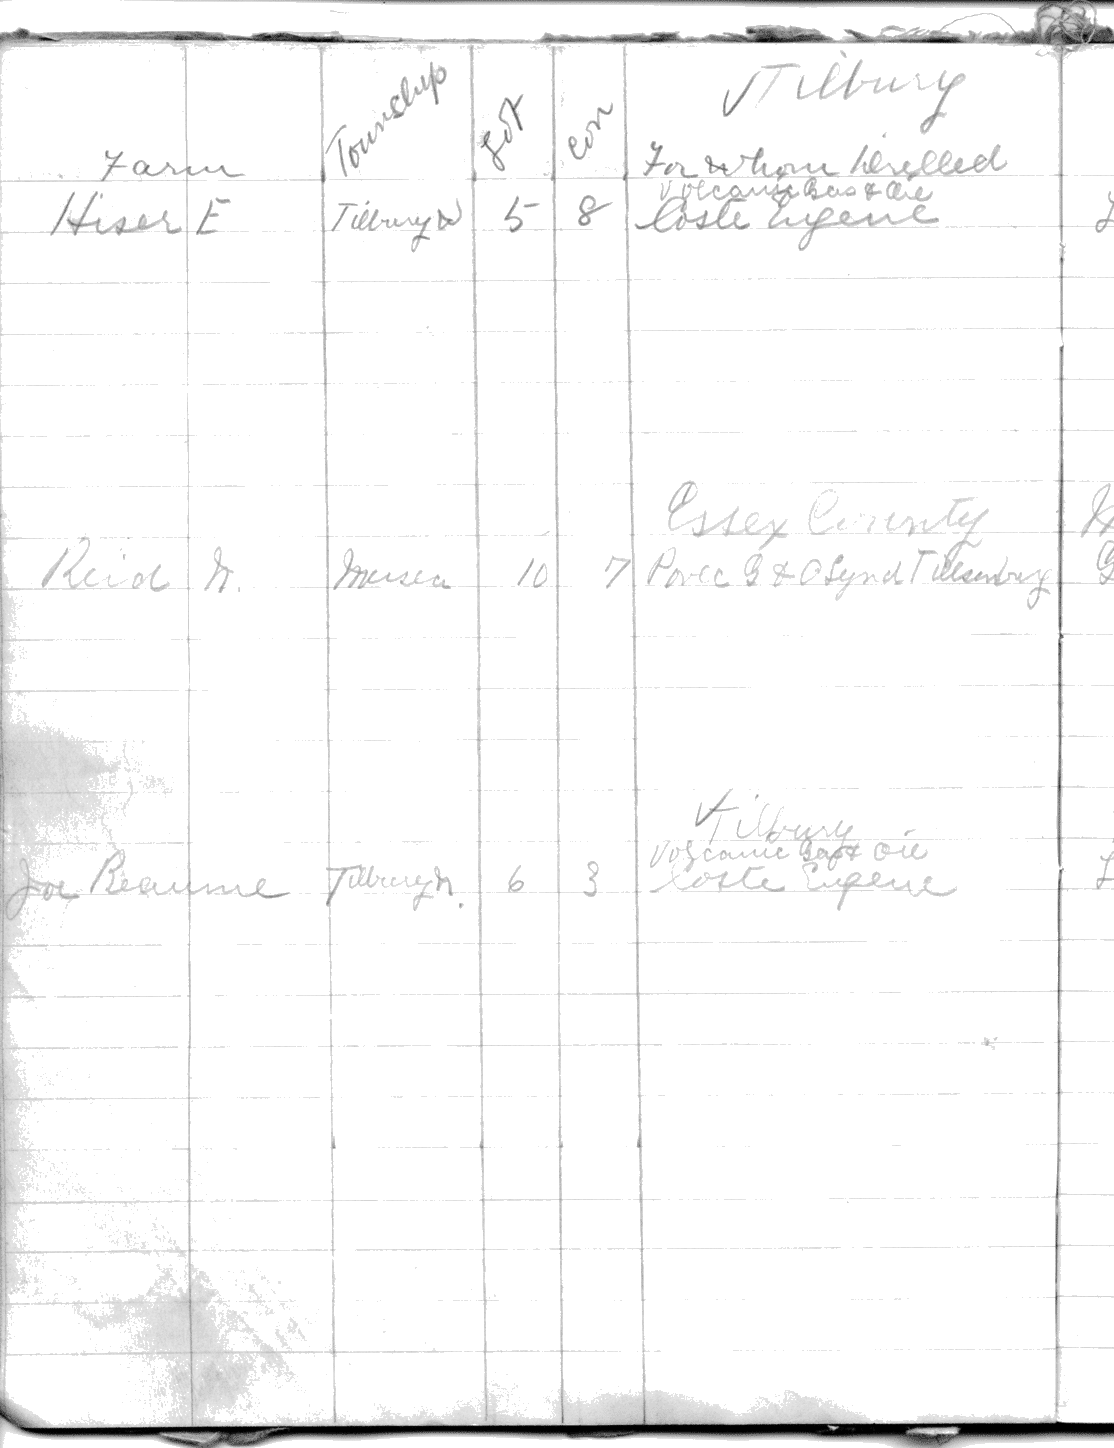 ✓Tilbury
Farm Township Lot Con For Whom Drilled
Volcanic Gas & Oil
Hiser E Tilbury W 5 8 Coste Eugene
Essex County
Reid N. Mersea 10 7 G & O Synd Tillsonburg
✓Tilbury
Volcanic Gas & Oil
Joe Beaume Tilbury N. 6 3 Coste Eugene